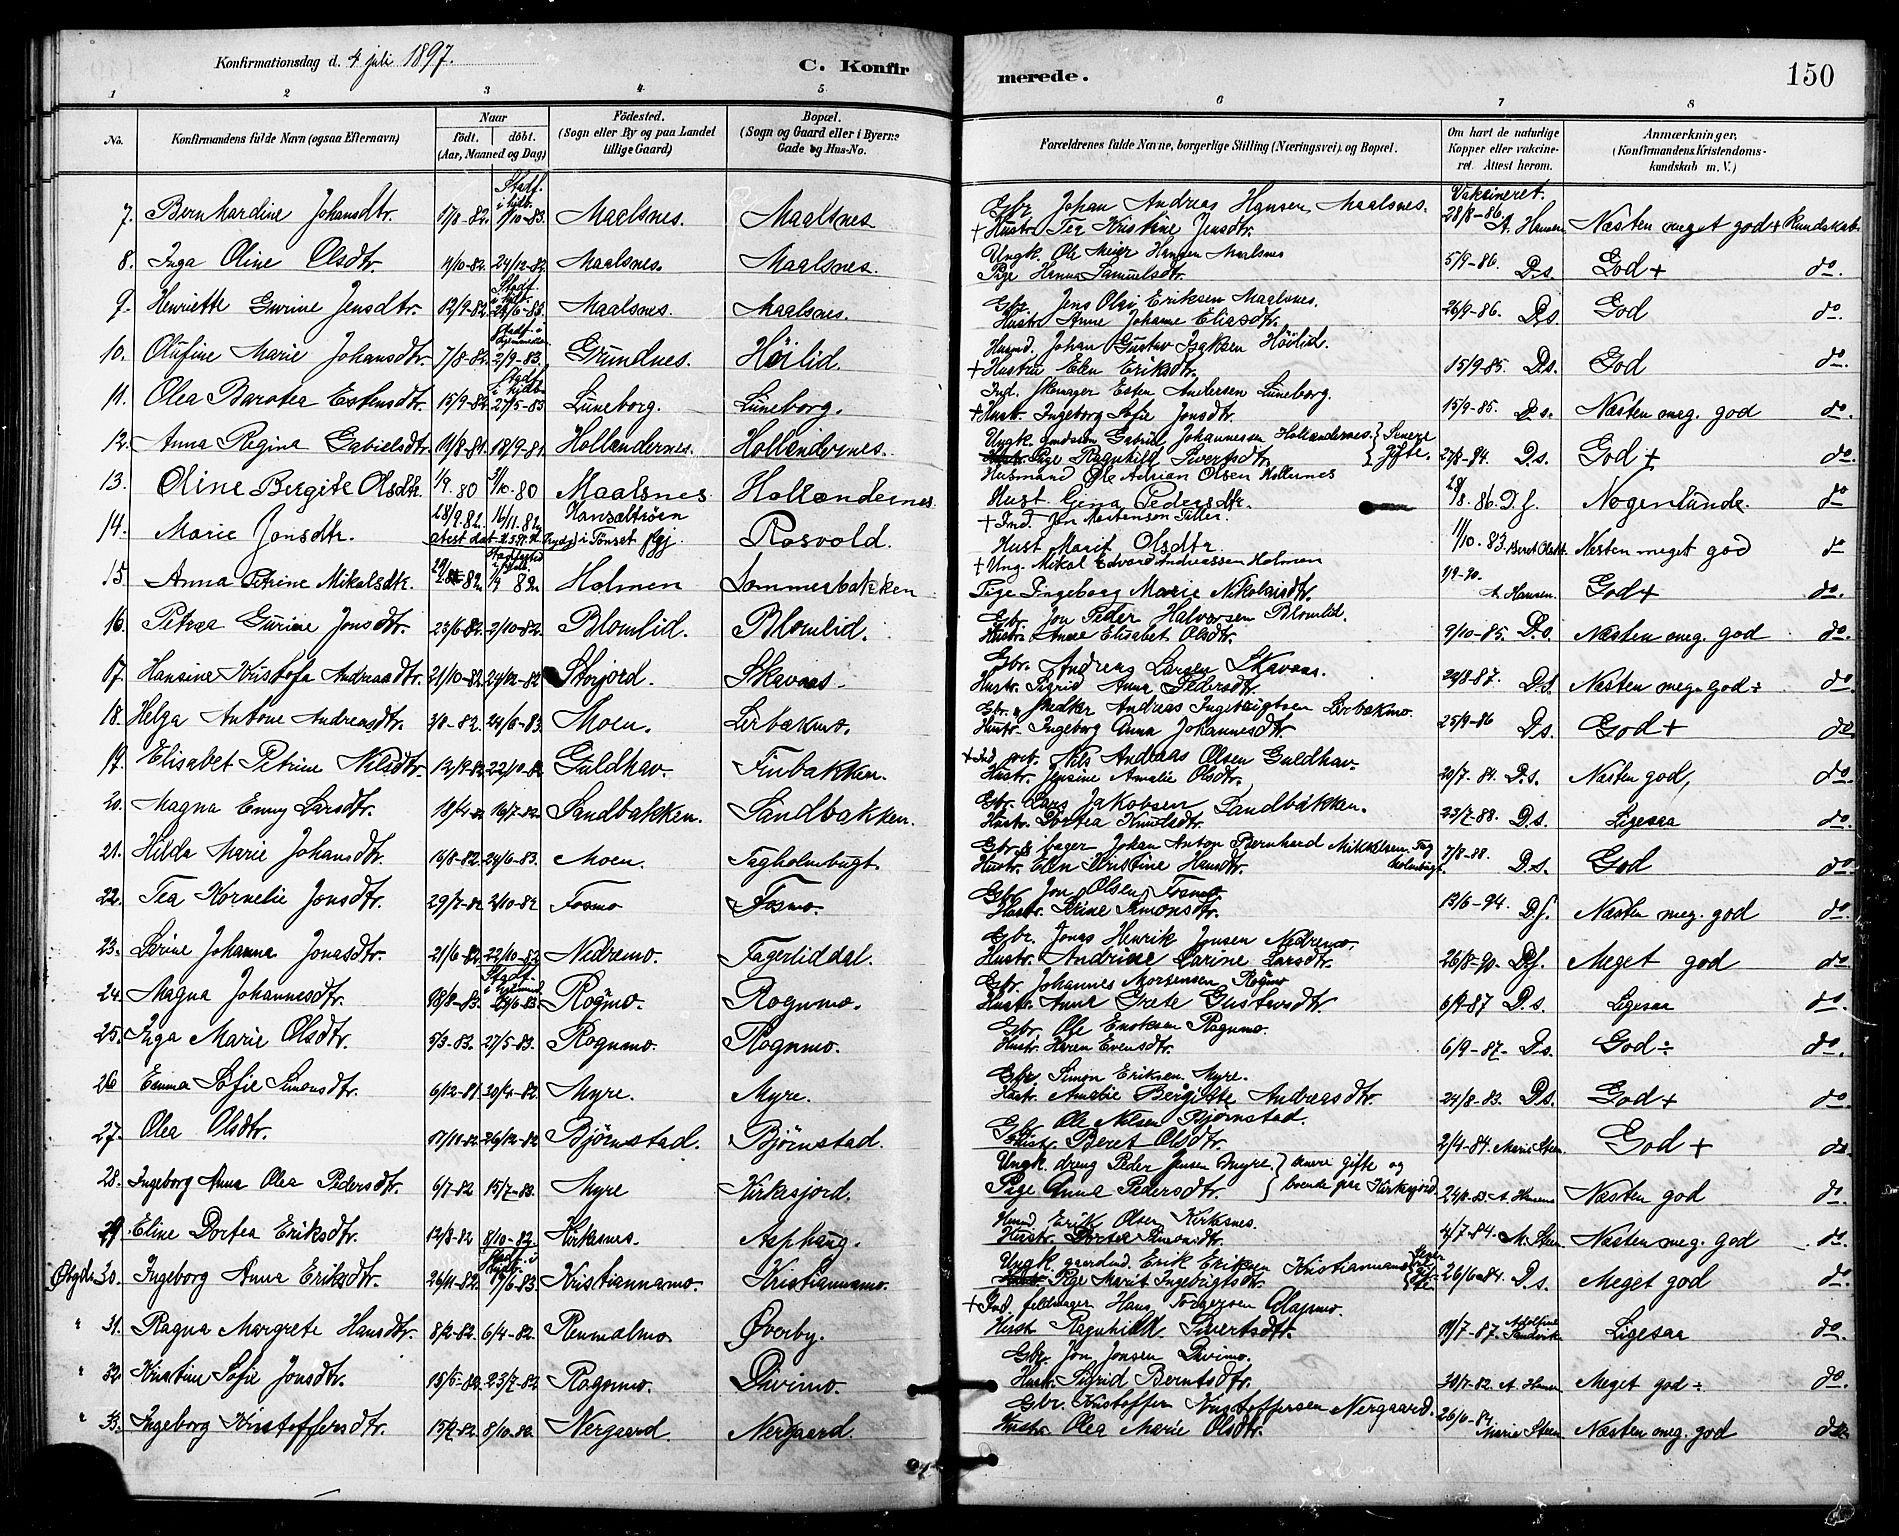 Konfirmationsdag d. 4 juli 1897.
C. Konfirmerede.
150
1 2 3 4 5 6 7 8
No. Konfirmandens fulde Navn (ogsaa Efternavn) Naar født. døbt. (Aar, Maaned og Dag) Födested. (Sogn eller By og paa Landet tillige Gaard) Bopæl. (Sogn og Gaard eller i Byerne Gade og Hus-No. Forældrenes fulde Navne, borgerlige Stilling (Næringsvei) og Bopæl. Om havt de naturlige Kopper eller vakcineret. Attest herom. Anmærkninger, (Konfirmandens Kristendomskundskab m. V.)
7. Bernhardine Johansdtr. Stadf. i hjk. Maalsnes. Maalsnes Gbr. Johan Andreas Hansen Maalsnes. Vaksineret. 28/8-86. A. Hansen Næsten meget god + Kundskab.
+ Hustr. Tea Kristine Jensdtr.
8. Inga Oline Olsdtr. 11/10-82. 24/12-82 Maalsnes. Maalsnes. Ungk. Ole Meier Hansen Maalsnes 5/9-86. D.s. God + do.
Pige Hanna Samuelsdtr.
9. Henriette Gurine Jensdtr. 12/9-82. Stadf. 24/6-83. Maalsnes. Maalsnes. Gbr. Jens Olai Eriksen Maalsnes. 26/9-86. D.s. God do.
Hustr. Anne Johanne Eliasdtr.
10. Olufine Marie Johansdtr. 7/8-82. 2/9-83. Grundnes. Höilid. Husmd. Johan Gustav Isaksen Höilid. 15/9-85. D.s. God do.
+ Hustru Elen Eriksdtr.
11. Olea Barotea Estensdtr. 15/9-82. Stadf. 27/5-83 Luneborg. Luneborg. Ind. Skomager Esten Andersen Luneborg. 15/9-85. D.s. Næsten meg. god do.
+ Hustr. Ingeborg Sofie Jonsdtr.
12. Anna Regina Gabrielsdtr 11/8-81. 18/9-81. Hollandernes. Hollændernes. Ungk. Gabriel Johannessen Hollændernes. Senere Gifte. D.s. God + do.
Pige Ragnhild Sivertsdtr.
13. Oline Bergite Olsdtr. 1/9 80 3/10 80 Maalsnes Hollændernes Husmand Ole Adrian Olsen Hollernes 28/8. 86. D.s. Nogenlunde. do
Hust. Gjena Pedersdtr.
14. Marie Jonsdtr. 28/9 82. 16/11. 82. i Tønset pgj. Rosvold. + Ind. Jon Mortenson Tiller. 11/10. 83. Beret Olsdtr Nesten meget god do
Hust Marit Olsdtr.
15. Anna Petrine Mikalsdtr. 82. 1/9 82. Holmen Sommerbakken + Ung. Mikal Edvard Andreassen Holmen A. Hansen. God + do.
Pige Ingeborg Marie Nikolaisdtr.
16. Petrea Gurine Jonsdtr. 23/6-82. 2/10-82. Blomlid. Blomlid. Gbr. Jon Peder Halvorsen Blomlid. 9/10-85. D.s. Næsten meg. god do.
Hustr. Anne Elisabet Olsdtr.
17. Hansine Kristofa Andreasdtr. 21/10-82. 24/12-82 Storjord. Skavaas. Gbr. Andreas Larsen Skavaas. 29/8-87. D.s. Næsten meg. god ÷ do.
Hustr. Sigrid Anna Pedersdtr.
18. Helga Antone Andreasdtr. 24/6-83. Moen. Lerbækmo. Gbr. & snedker Andreas Ingebrigtsen Lerbækmo. 25/9-86 D.s. God + do
Hustr. Ingeborg Anna Johannesdtr.
19. Elisabet Petrine Nilsdtr. 12/9-82. 22/10-82 Guldhav. Finbakken. + Ind. Nils Andreas Olsen Guldhav. 20/7 84. D.s. Næsten god, do.
Hustr. Jensine Amalie Olsdtr.
20. Magna Emmy Larsdtr. 18/4-82 16/7-82. Sandbakken. Sandbakken. Gbr. Lars Jakobsen Sandbakken. 23/7-88. D.s. Ligesaa do.
Hustr. Dortea Knudsdtr.
21. Hilda Marie Johansdtr. 16/8-82. 24/6-83. Moen. Fagholmbugt. Gbr & bager Johan Anton Bernhard Mikkelsen Fagholmbugt. 7/8-88. D.s. God do.
Hustr. Elen Kristine Hansdtr.
22. Tea Kornelie Jonsdtr. 29/7-82 2/10-82 Fosmo Fosmo. Gbr. Jon Olsen Fosmo 13/6-94. D.s. Næsten meg. god do.
Hustr. Stine Simonsdtr.
23. Sørine Johanna Jonasdtr. 21/6-82. 22/10-82. Nedremo. Fagerliddal. Gbr. Jonas Henrik Jonsen Nedremo. 26/8-90. D.s. Meget god do.
Hustr. Andrine Larine Larsdtr.
24. Magna Johannesdtr. Stadf. 24/6-83. Rognmo. Rognmo. Gbr. Johannes Mortensen Rognmo 6/9-87 D.s. Ligesaa do.
Hustr. Anna Grete Gustavsdtr.
25. Inga Marie Olsdtr. 5/3-83. 27/5-83. Rognmo. Rognmo. Gbr. Ole Enoksen Rognmo. 6/9-87. D.s. God ÷ do.
Hustr. Karen Evensdtr.
26 Emma Sofie Simonsdtr. 6/12-81. 29/4-82. Myre. Myre. Gbr Simon Eriksen Myre. 24/8-83. D.s. God + do.
Hustr. Amalie Bergitte Andreasdtr.
27. Olea Olsdtr. 17/11-82. 26/12-82 Bjørnstad. Bjørnstad. Gbr. Ole Nilsen Bjørnstad. 2/4-84. Marie Steen. God + do.
Hustr. Beret Olsdtr.
28. Ingeborg Anna Olea Pedersdtr. 6/7-82 15/7-83. Myre Kirkesjord. Ungk. dreng Peder Jensen Myre. senere gifte og boende paa Kirkesjord. A. Hansen Næsten god do.
Pige Anna Pedersdtr.
29. Eline Dortea Eriksdtr. 12/8-82 8/10-82. Kirkesnes. Asphaug. Husmd. Erik Olsen Kirkesnes. 4/7-84. M. Steen. Næsten meg. god do.
Hustr. Dortea Simonsdtr.
30. Ingeborg Anna Eriksdtr. 26/11-82. Stadf. 17/6-83. Kristiannamo. Kristiannamo. Ungk. gaardmd. Erik Eriksen Kristiannamo 26/6-84. D.s. Meget god do.
Pige Marit Ingebrigtsdtr.
" 31. Ragna Margrete Hansdtr. 8/2-82. 6/4-82. Renmælmo Øverby. + Ind. feldmager Hans Torgersen Alapmo. 19/7-87. Adolfine Sandvik Ligesaa do.
Hustr. Ragnhild Sivertsdtr.
" 32. Kristine Sofie Jonsdtr. 15/5-82. 23/7-82 Rognmo. Divimo. Gbr. Jon Jonsen Divimo. 30/7-82. A. Hansen Meget god ÷ do.
Hustr. Sigrid Berntsdtr.
" 33. Ingeborg Kristoffersdtr. 8/10-82. Nergaard. Nergaard. Gbr. Kristoffer Kristoffersen Nergaard. 26/6-84. Marie Steen Næsten meg. god do.
Hustr. Olea Marie Olsdtr.